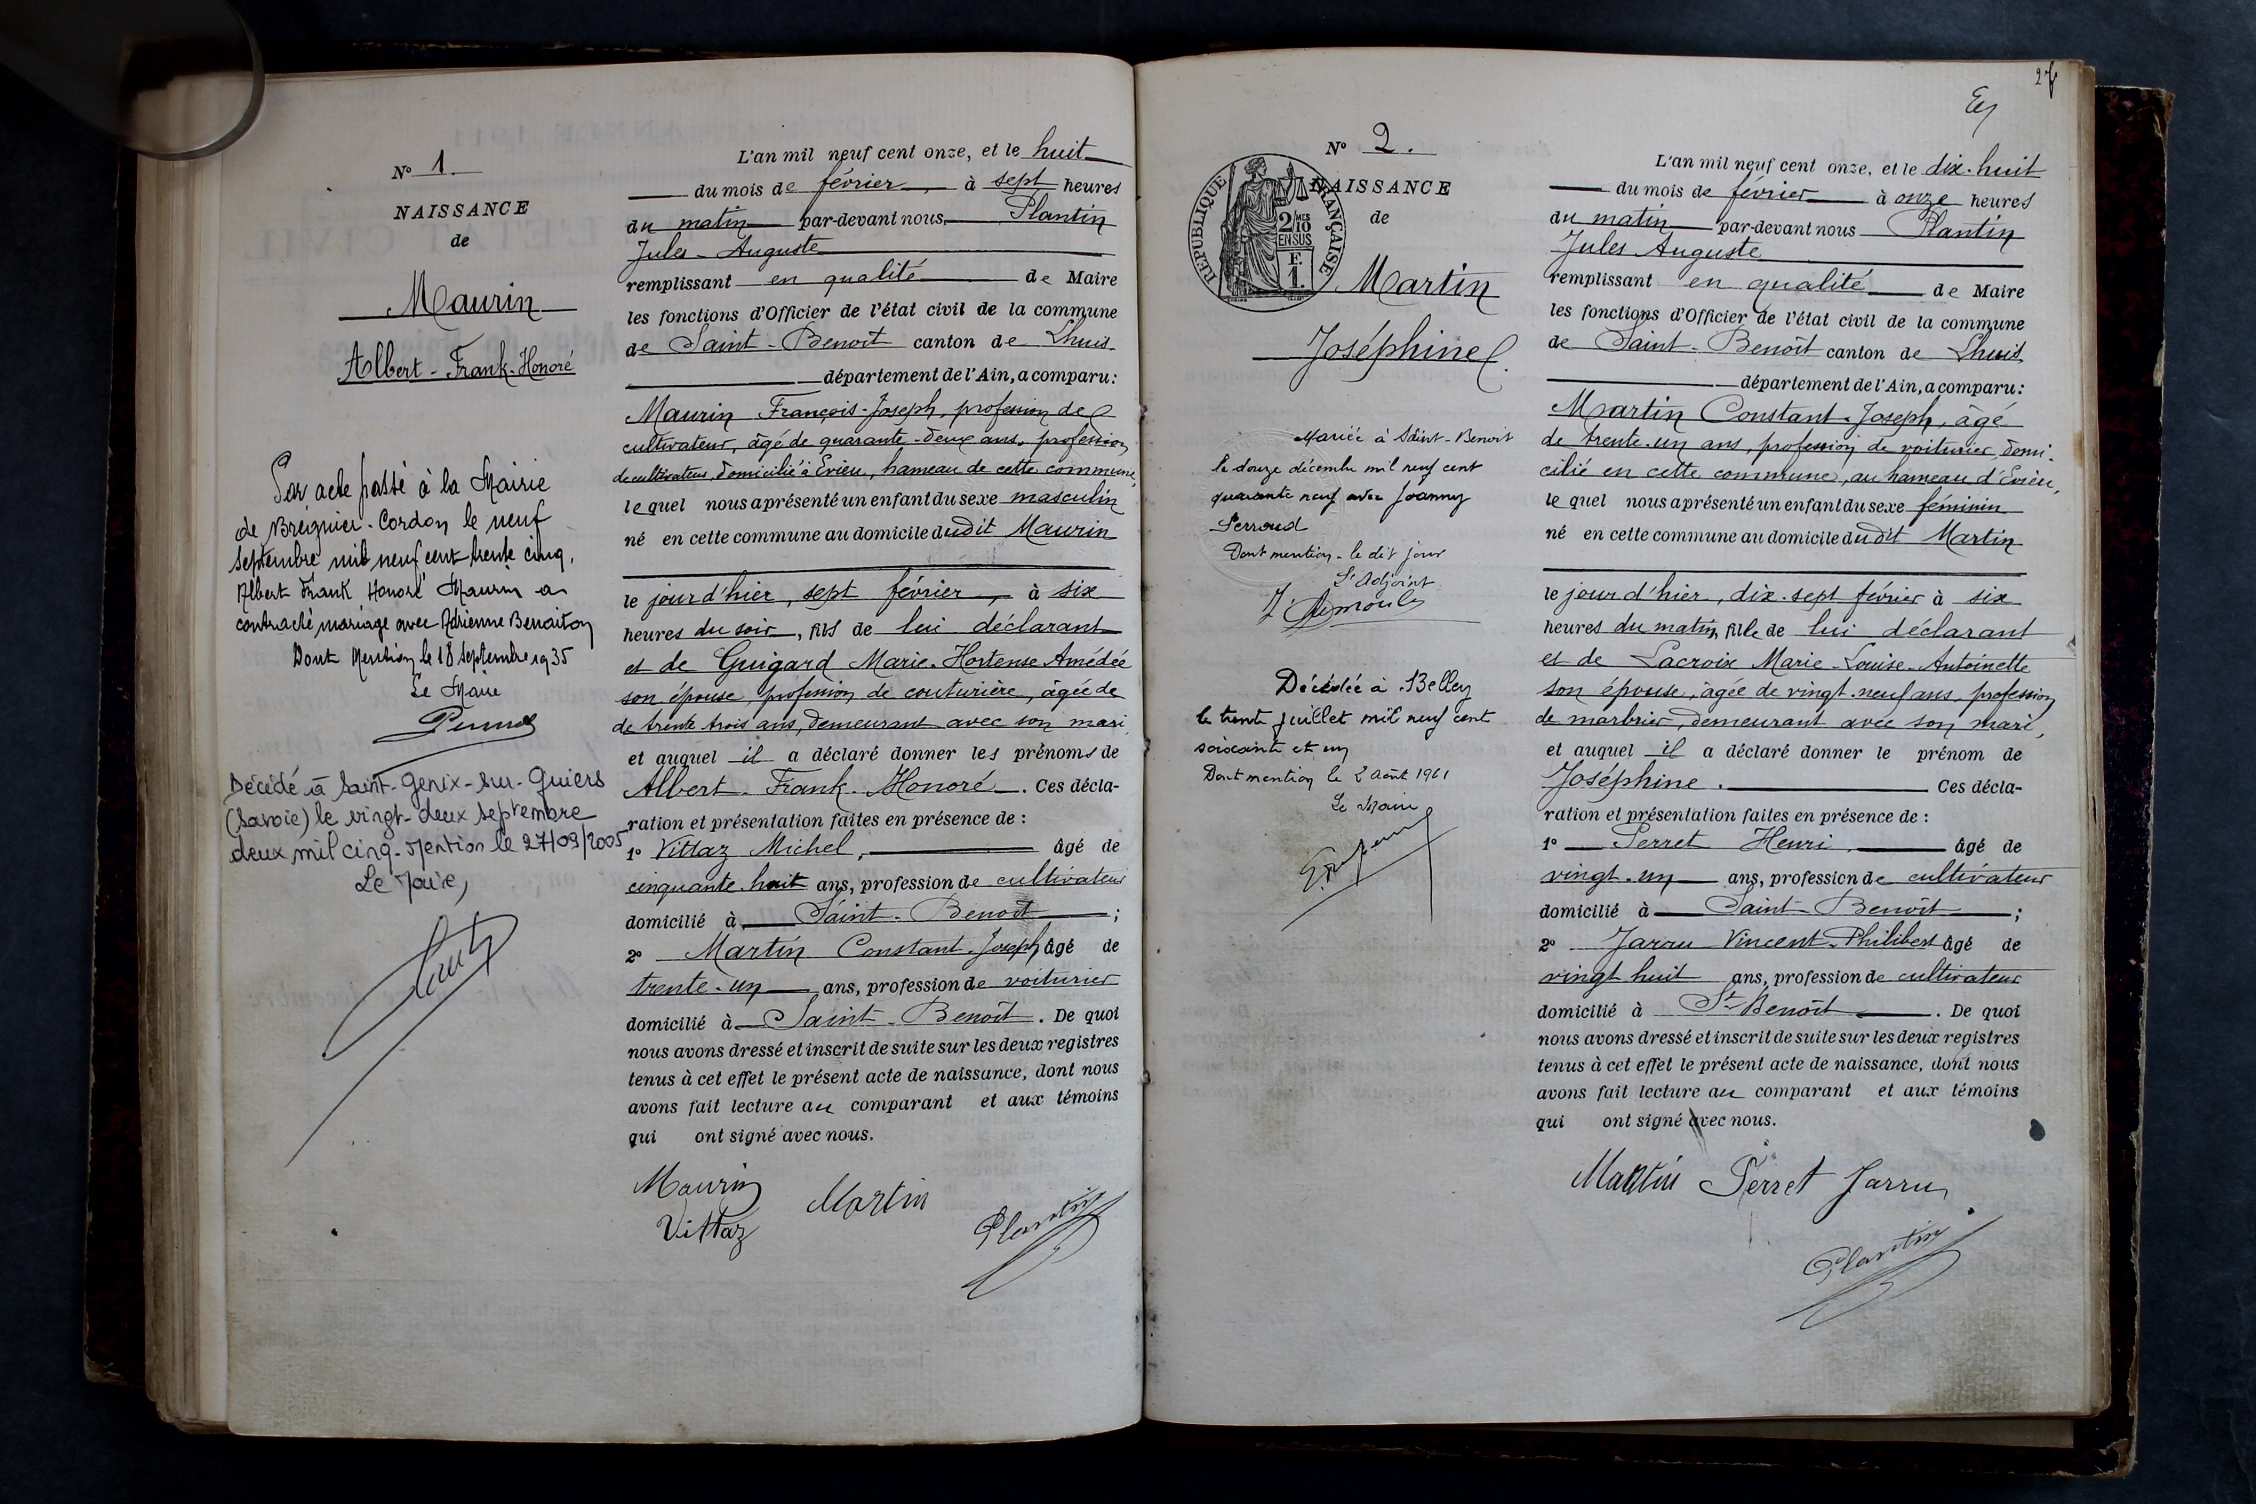 N° 1.
NAISSANCE
de
Maurin
Albert - Frank - Honoré
Par acte passé à la Mairie
de Brégnier-Cordon le neuf
septembre mil neuf cent trente cinq,
Albert Frank Honoré Maurin a
contracté mariage avec Adrienne Benoiton
Dont Mention le 18 septembre 1935
Le Maire
Décédé à Saint-Genix-sur-Guiers
(Savoie) le vingt-deux septembre
deux mil cinq. Mention le 27/09/2005
Le Maire,
L'an mil neuf cent onze, et le huit
du mois de février, à sept heures
du matin par-devant nous, Plantin
Jules - Auguste
remplissant en qualité de Maire
les fonctions d'Officier de l'état civil de la commune
de Saint-Benoit canton de Lhuis
département de l'Ain, a comparu:
Maurin François-Joseph, profession de
cultivateur, âgé de quarante-deux ans, profession
de cultivateur, domicilié à Evieu, hameau de cette commune,
lequel nous a présenté un enfant du sexe masculin
né en cette commune au domicile dudit Maurin
le jour d'hier, sept février, à six
heures du soir, fils de lui déclarant
et de Guigard Marie-Hortense Amédée
son épouse, profession de couturière, âgée de
de trente trois ans, demeurant avec son mari,
et auquel il a déclaré donner les prénoms de
Albert - Frank - Honoré. Ces décla-
ration et présentation faites en présence de :
1° Vittaz Michel, âgé de
cinquante-huit ans, profession de cultivateur
domicilié à Saint-Benoit ;
2° Martin Constant-Joseph, âgé de
trente-un ans, profession de voiturier
domicilié à Saint-Benoît. De quoi
nous avons dressé et inscrit de suite sur les deux registres
tenus à cet effet le présent acte de naissance, dont nous
avons fait lecture au comparant et aux témoins
qui ont signé avec nous.
Maurin Martin
Vittaz Plantin
27
N° 2.
RÉPUBLIQUE FRANÇAISE
2/10 MES
EN SUS
F.
1.
NAISSANCE
de
Martin
Joséphine
Mariée à Saint-Benoit
le douze décembre mil neuf cent
quarante neuf avec Joanny
Perroud
Dont mention - le dit jour
L'Adjoint
Décédée à Belley
le trente juillet mil neuf cent
soixante et un
Dont mention le 2 Août 1961
Le Maire
L'an mil neuf cent onze, et le dix-huit
du mois de février à onze heures
du matin par-devant nous Plantin
Jules Auguste
remplissant en qualité de Maire
les fonctions d'Officier de l'état civil de la commune
de Saint-Benoît canton de Lhuis,
département de l'Ain, a comparu:
Martin Constant-Joseph, âgé
de trente-un ans, profession de voiturier, domi-
cilié en cette commune, au hameau d'Evieu,
lequel nous a présenté un enfant du sexe féminin
né en cette commune au domicile dudit Martin
le jour d'hier, dix-sept février à six
heures du matin, fille de lui déclarant
et de Lacroix Marie-Louise-Antoinette
son épouse, âgée de vingt-neuf ans, profession
de marbrier, demeurant avec son mari,
et auquel il a déclaré donner le prénom de
Joséphine. Ces décla-
ration et présentation faites en présence de :
1° Perret Henri, âgé de
vingt-un ans, profession de cultivateur
domicilié à Saint-Benoît ;
2° Jarru Vincent-Philibert âgé de
vingt huit ans, profession de cultivateur
domicilié à St-Benoît. De quoi
nous avons dressé et inscrit de suite sur les deux registres
tenus à cet effet le présent acte de naissance, dont nous
avons fait lecture au comparant et aux témoins
qui ont signé avec nous.
Martin Perret Jarru
Plantin